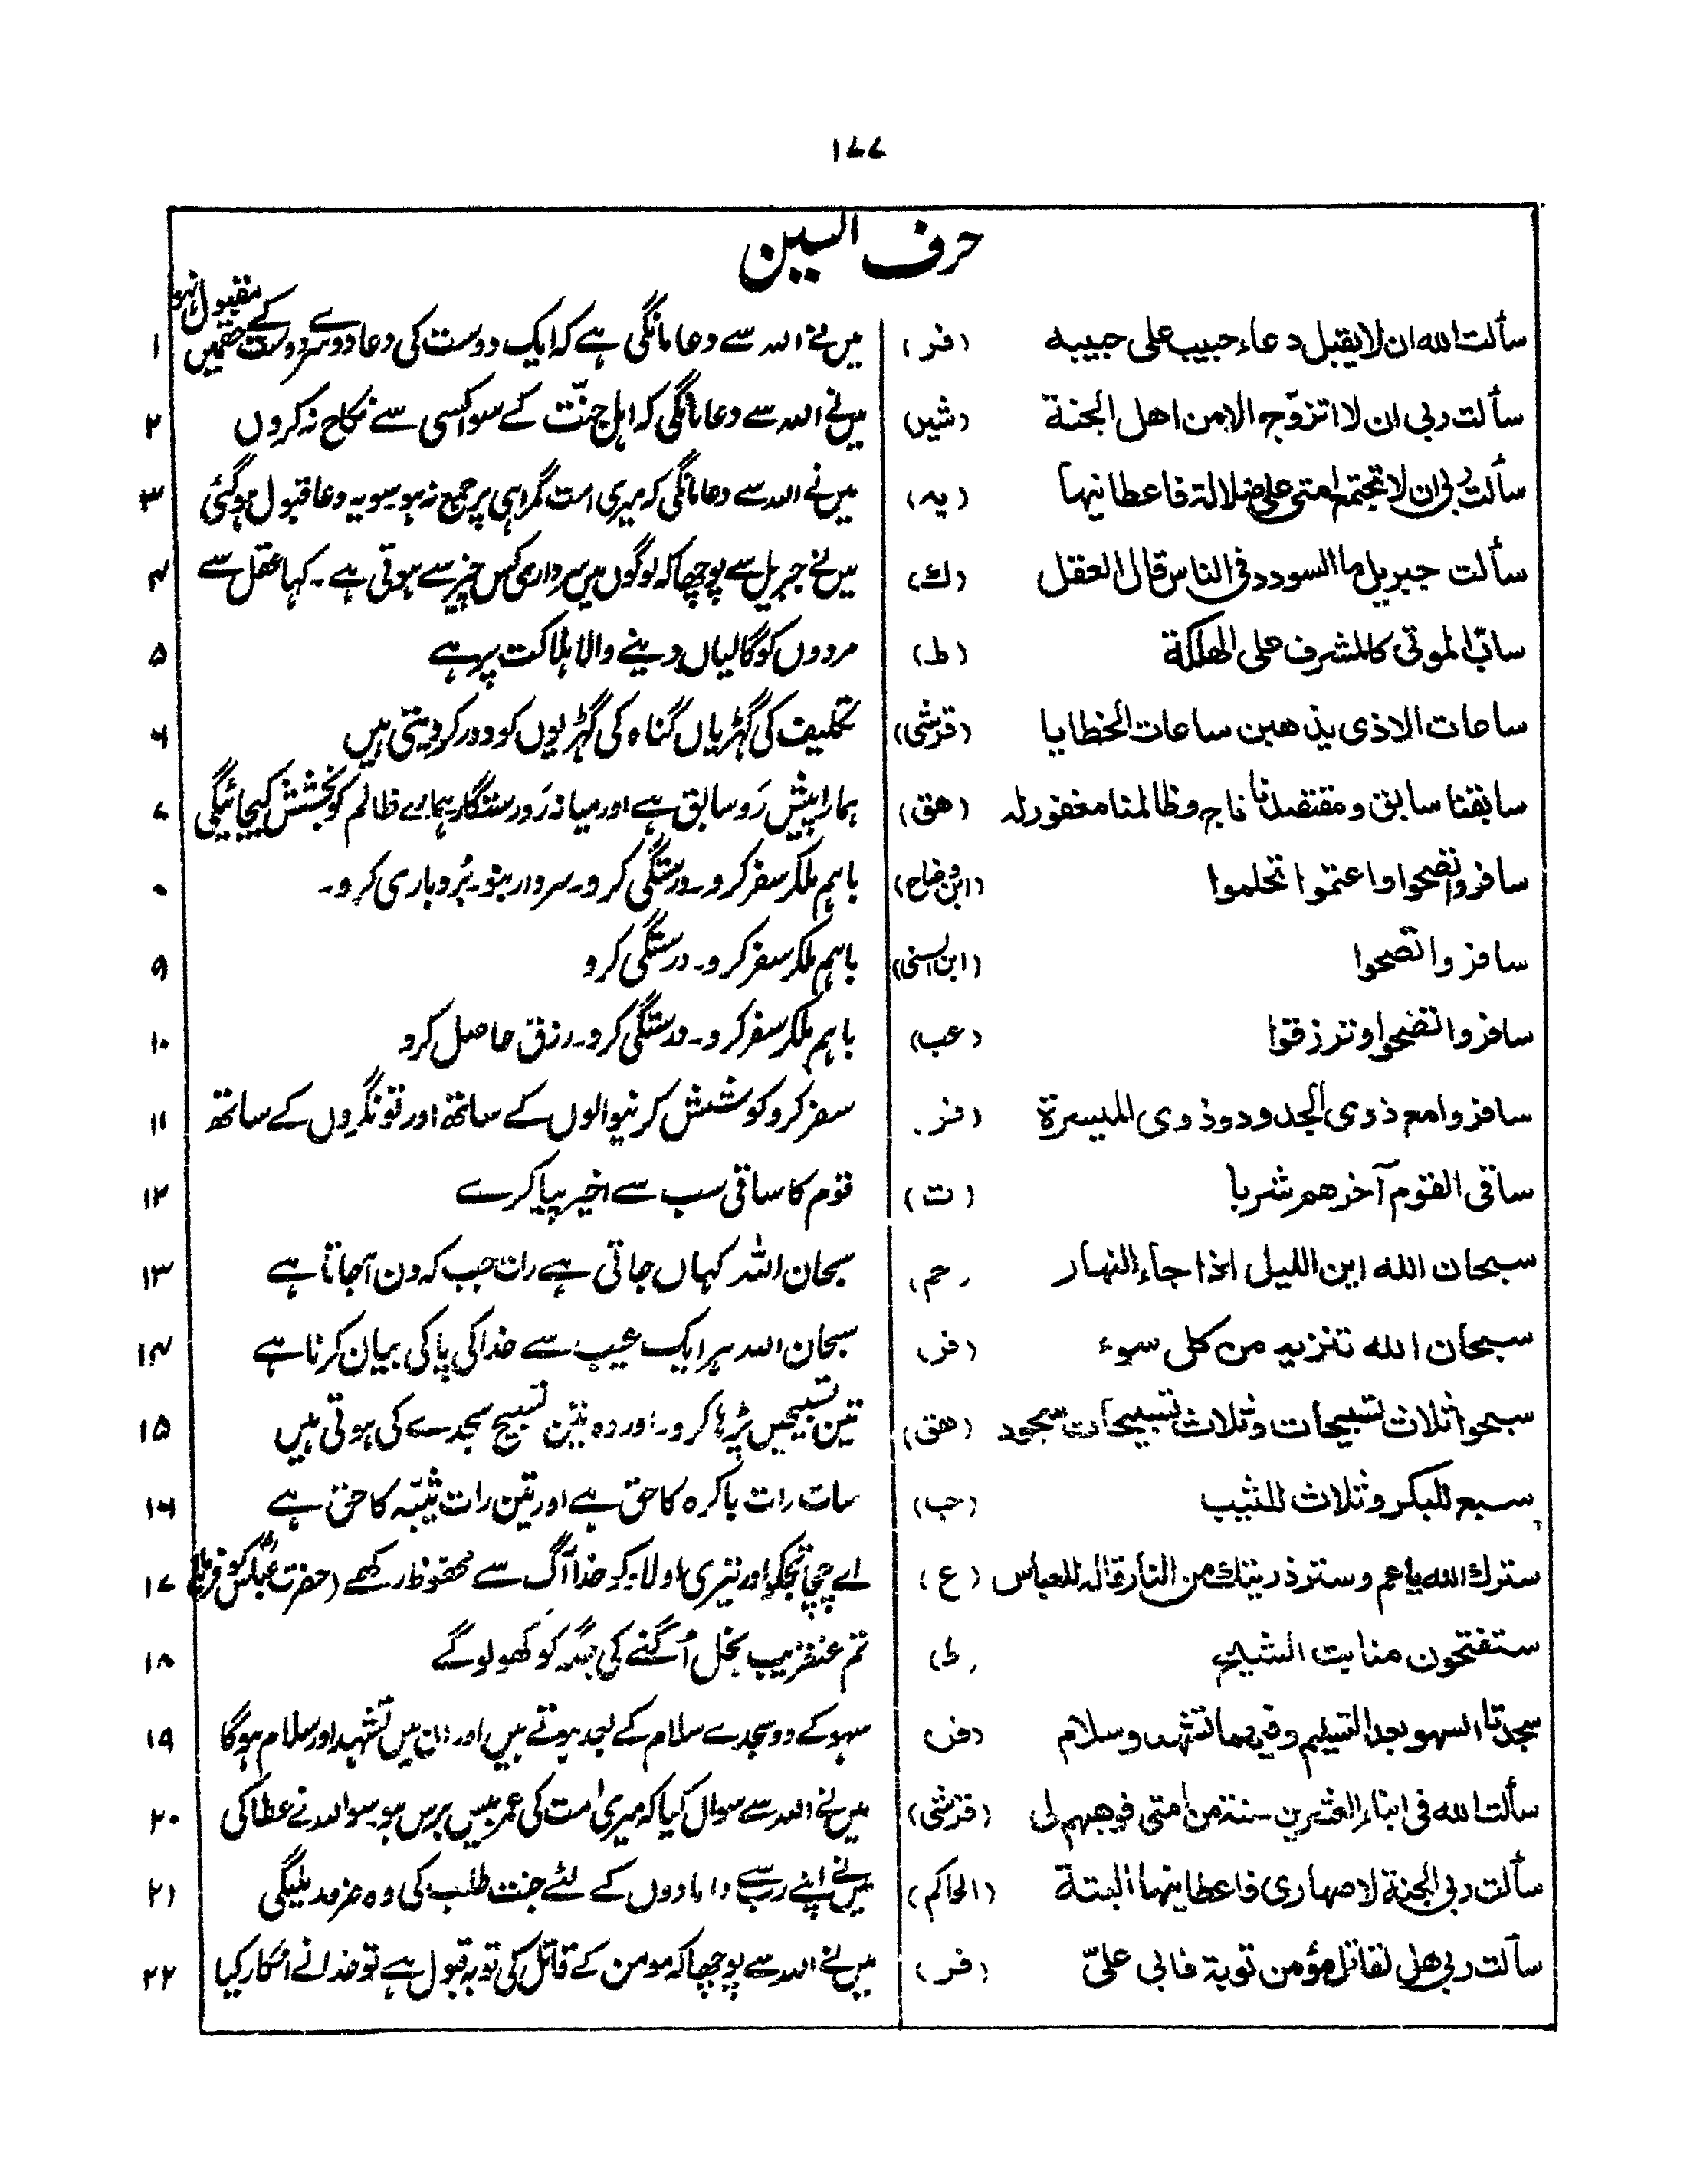 ۱۷۷
حرف السین
سألت الله ان لا یقبل دعاء حبیب علی حبیبه (فر) میں نے اللہ سے دعا مانگی ہے کہ ایک دوست کی دعا دوسرے دوست کے حقمیں مقبول نہو ۱
سألت ربی ان لا اتزوّج الا من اهل الجنة (شیر) میں نے اللہ سے دعا مانگی کہ اہل جنّت کے سوا کسی سے نکاح نہ کروں ۲
سألت ربی ان لا تجتمع امتی علی ضلالة فاعطانیها (یه) میں نے اللہ سے دعا مانگی کہ میری امت گمراہی پر جمع نہ ہو سو یہ دعا قبول ہوگئی ۳
سألت جبریل ما السودد فی الناس قال العقل (ك) میں نے جبریل سے پوچھا کہ لوگوں میں سرداری کس چیز سے ہوتی ہے ۔ کہا عقل سے ۴
سابّ الموتی کالمشرف علی الهلکة (ط) مردوں کو گالیاں دینے والا ہلاکت پر ہے ۵
ساعات الاذی یذهبن ساعات الخطایا (قرشی) تکلیف کی گہڑیاں گناہ کی گہڑیوں کو دور کر دیتی ہیں ۶
سابقنا سابق ومقتصدنا ناج وظالمنا مغفور له (هق) ہمارا پیش رَو سابق ہے اور میانہ رَو رستگار ہمارے ظالم کو بخشش کیجائیگی ۷
سافروا تصحوا واعتموا تحلموا (ابن وضاح) باہم ملکر سفر کرو۔ درستگی کرو۔ سردار بنو۔ بُردباری کرو۔ ۸
سافروا تصحوا (ابن السنی) باہم ملکر سفر کرو۔ درستگی کرو ۹
سافروا تصحوا وترزقوا (عب) باہم ملکر سفر کرو۔ درستگی کرو۔ رزق حاصل کرو ۱۰
سافروا مع ذوی الجدود وذوی المیسرة (فر) سفر کرو کوشش کرنیوالوں کے ساتھ اور تونگروں کے ساتھ ۱۱
ساقی القوم آخرهم شربا (ت) قوم کا ساقی سب سے اخیر پیا کرے ۱۲
سبحان الله این اللیل اذا جاء النهار (حم) سبحان اللہ کہاں جاتی ہے رات جب کہ دن آجاتا ہے ۱۳
سبحان الله تنزیه من کل سوء (فر) سبحان اللہ ہر ایک عیب سے خدا کی پاکی بیان کرنا ہے ۱۴
سبحوا ثلاث تسبیحات وثلاث تسبیحات سجود (هق) تین تسبیحیں پڑہا کرو۔ اور وہ تین تسبیح سجدے کی ہوتی ہیں ۱۵
سبع للبکر وثلاث للثیب (حب) سات رات باکرہ کا حق ہے اور تین رات ثیّبہ کا حق ہے ۱۶
سترك الله یا عم وستر ذریتك من النار قاله للعباس (ع) اے چچا تجکو اور تیری اولاد کو خدا آگ سے محفوظ رکھے (حضرت عباس کو فرمایا) ۱۷
ستفتحون منابت الشیح تم عنقریب بخل اُگنے کی جگہ کو کھولوگے ۱۸
سجدتا السهو بعد التسلیم وفیهما تشهد وسلام (فر) سہو کے دو سجدے سلام کے بعد ہوتے ہیں اور ان میں تشہد اور سلام ہوگا ۱۹
سألت الله فی ابناء العشرین سنة من امتی فوهبهم لی (قرشی) میں نے اللہ سے سوال کیا کہ میری امت کی عمر بیس برس ہو سو اللہ نے عطا کی ۲۰
سألت ربی الجنة لاصهاری فاعطانیها البتة (الحاکم) میں نے اپنے رب سے دامادوں کے لئے جنت طلب کی وہ ضرور ملیگی ۲۱
سألت ربی هل لقاتل مؤمن توبة فابی علیّ (فر) میں نے اللہ سے پوچھا کہ مومن کے قاتل کی توبہ قبول ہے تو خدا نے انکار کیا ۲۲